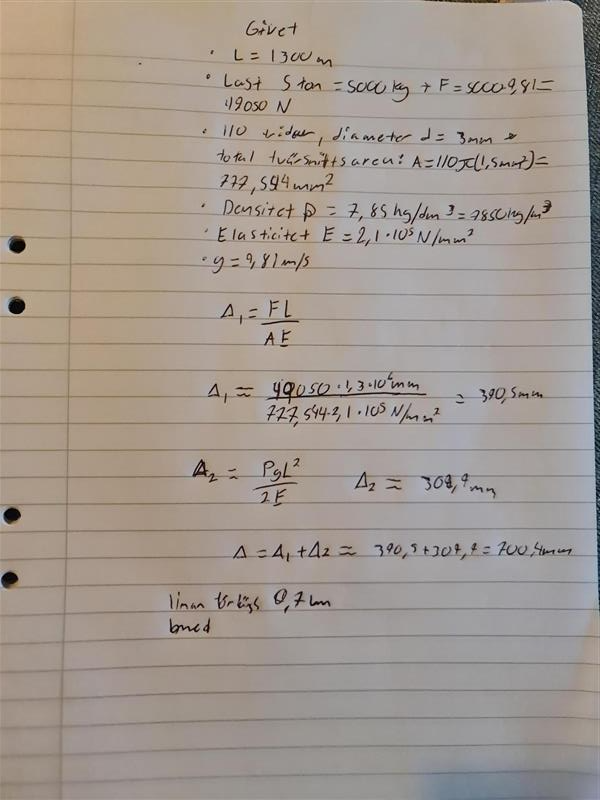 Givet
• L = 1300 m
• Last 5 ton = 5000 kg → F = 5000·9,81 =
49050 N
• 110 trådar, diameter d = 3mm →
total tvärsnittsarea: A = 110π(1,5mm²) =
777,544 mm²
• Densitet ρ = 7,85 kg/dm³ = 7850 kg/m³
• Elasticitet E = 2,1·10⁵ N/mm²
• g = 9,81 m/s
Δ₁ = FL / AE
Δ₁ ≈ 49050·1,3·10⁶ mm / 777,544·2,1·10⁵ N/mm² = 390,5mm
Δ₂ = ρgL² / 2E Δ₂ ≈ 309,9 mm
Δ = Δ₁ + Δ₂ ≈ 390,5 + 309,9 = 700,4mm
linan förlängs 0,7
med